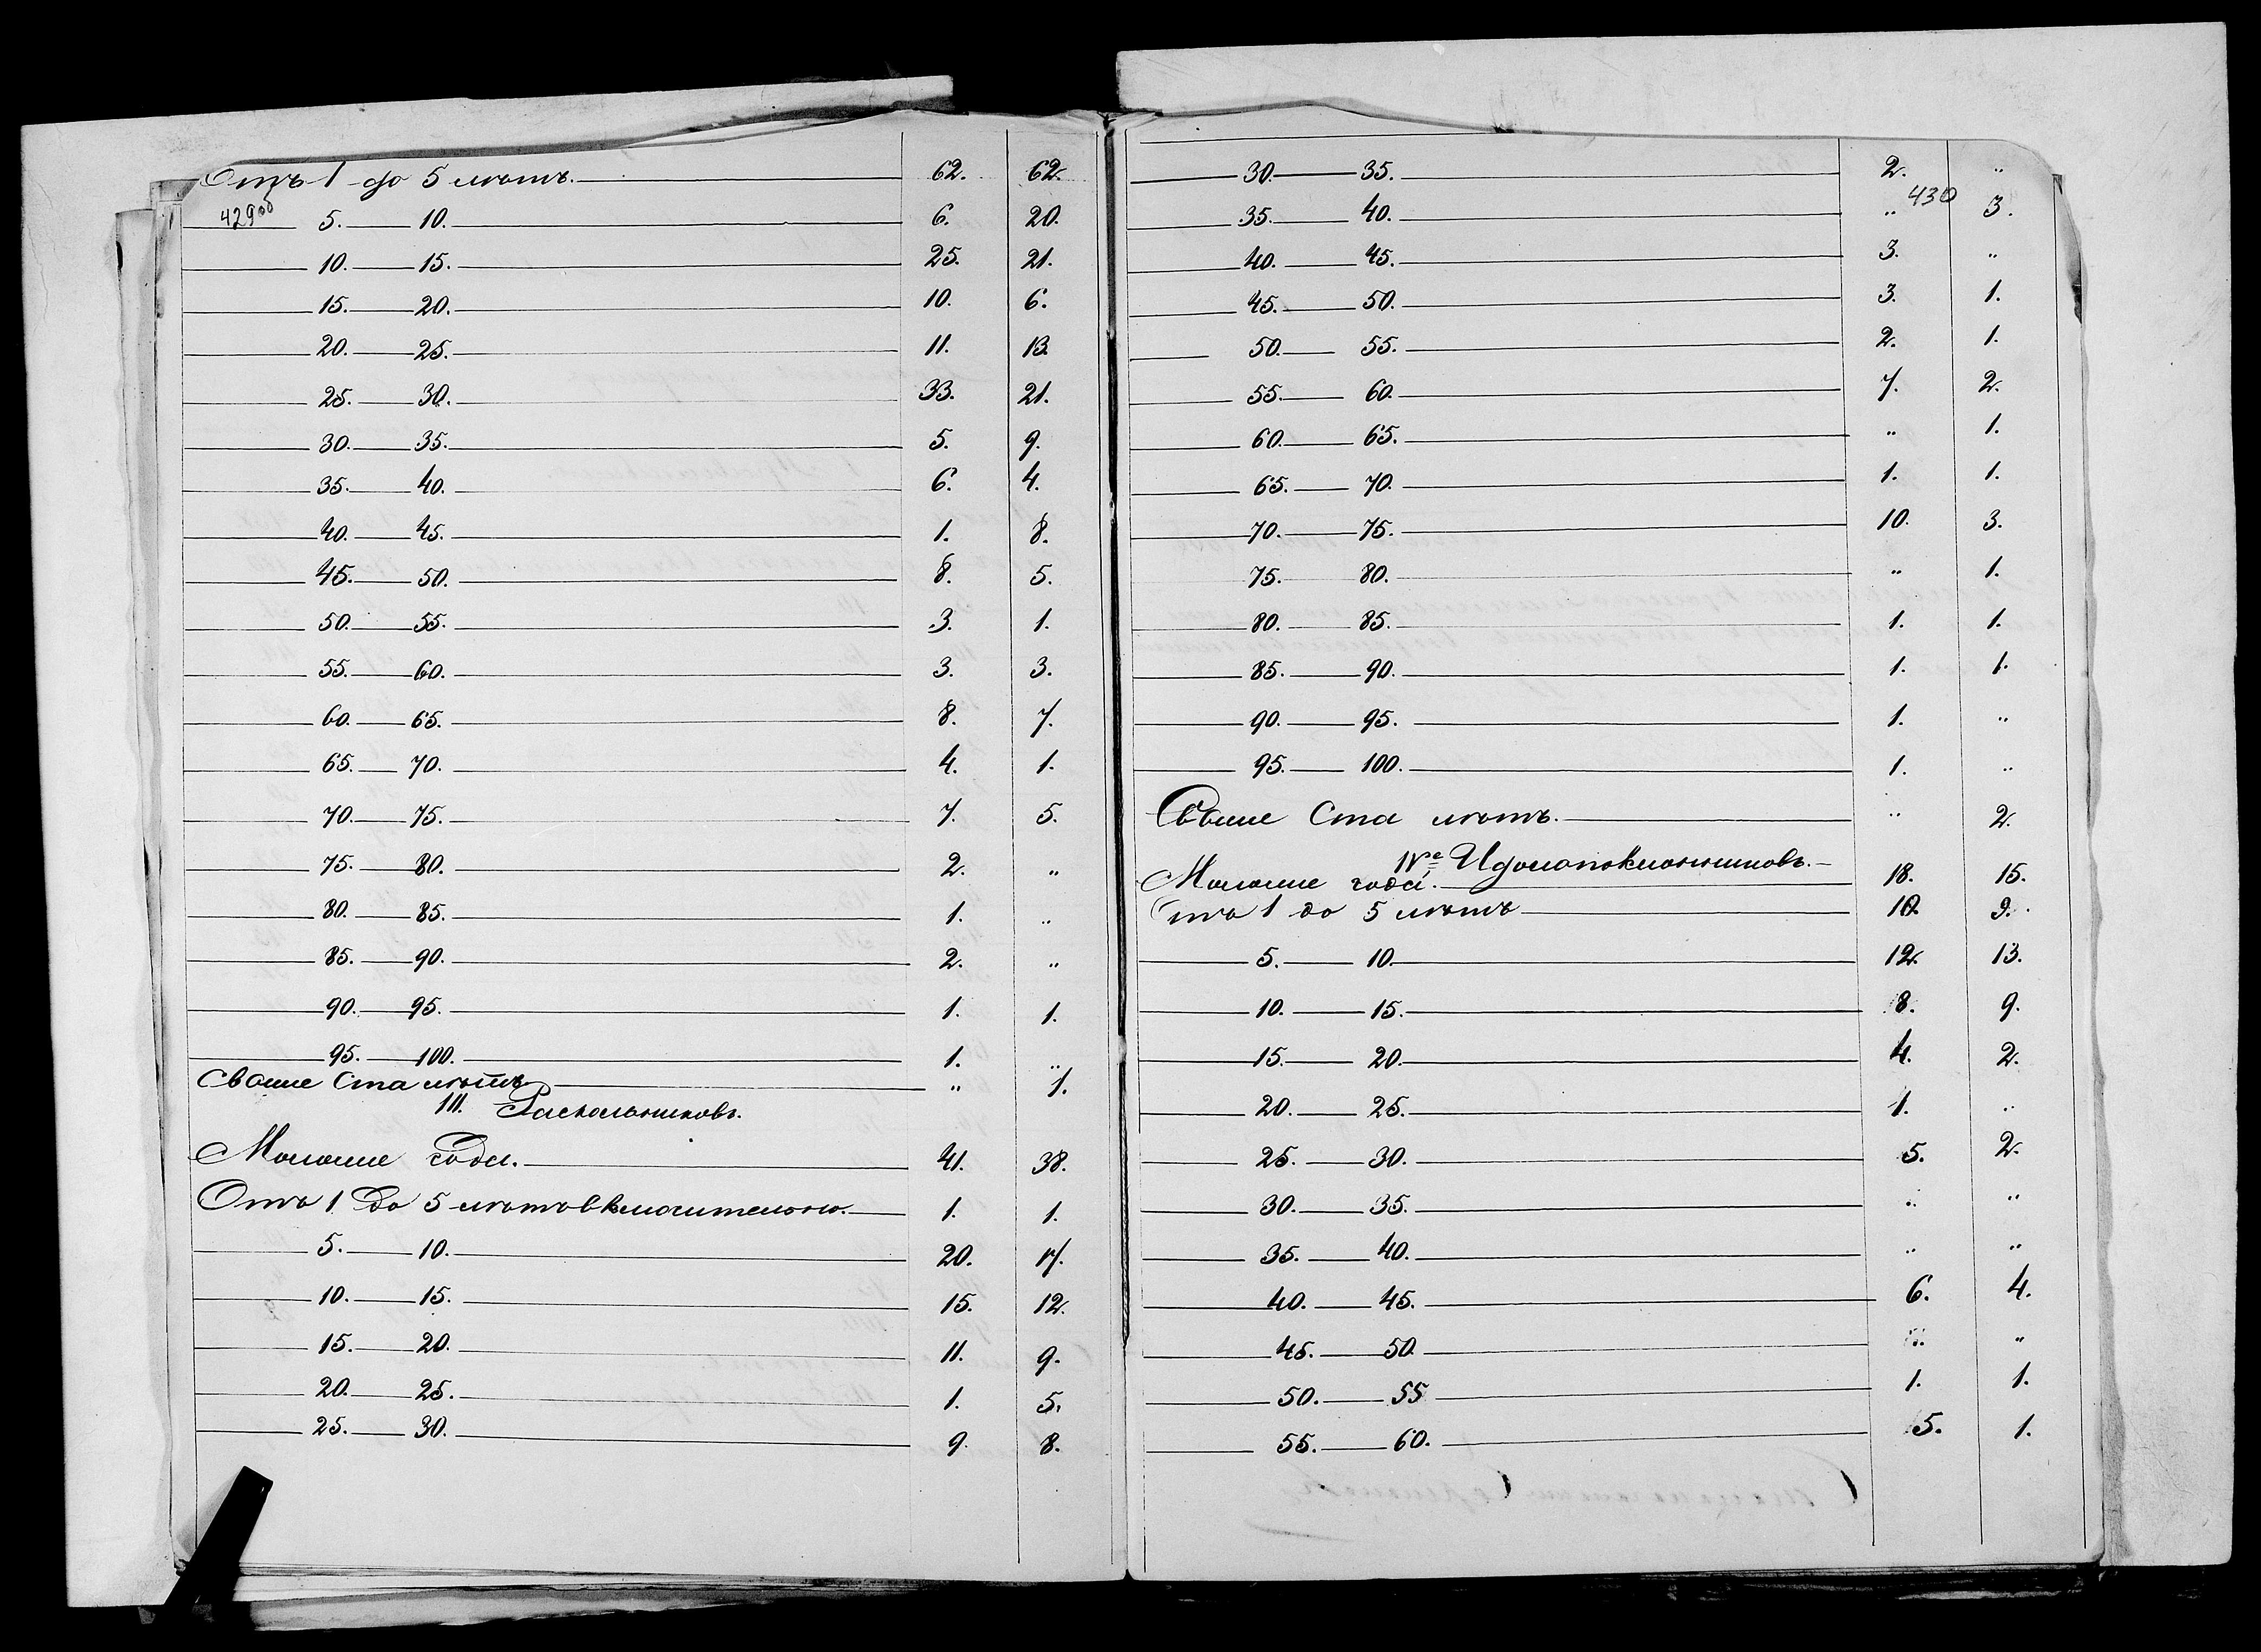 Отъ 1 до 5 лѣтъ. 62. 62.
429об
5. 10. 6. 20.
10. 15. 25. 21.
15. 20. 10. 6.
20. 25. 11. 13.
25. 30. 33. 21.
30. 35. 5. 9.
35. 40. 6. 4.
40. 45. 1. 8.
45. 50. 8. 5.
50. 55. 3. 1.
55. 60. 3. 3.
60. 65. 8. 7.
65. 70. 4. 1.
70. 75. 7. 5.
75. 80. 2. "
80. 85. 1. "
85. 90. 2. "
90. 95. 1. 1.
95. 100. 1. "
Свыше ста лѣтъ " 1.
III. Раскольниковъ.
Мѣньше года. 41. 38.
Отъ 1 до 5 лѣтъ включительно. 1. 1.
5. 10. 20. 17.
10. 15. 15. 12.
15. 20. 11. 9.
20. 25. 1. 5.
25. 30. 9. 8.
30. 35. 2. "
430
35. 40. " 3.
40. 45. 3. "
45. 50. 3. 1.
50. 55. 2. 1.
55. 60. 7. 2.
60. 65. " 1.
65. 70. 1. 1.
70. 75. 10. 3.
75. 80. " 1.
80. 85. 1. 1.
85. 90. 1. 1.
90. 95. 1. "
95. 100. 1. "
Свыше ста лѣтъ. " 2.
IVе Идолопоклонниковъ.
Мѣньше года. 18. 15.
Отъ 1 до 5 лѣтъ 10. 9.
5. 10. 12. 13.
10. 15. 8. 9.
15. 20. 4. 2.
20. 25. 1. "
25. 30. 5. 2.
30. 35. " "
35. 40. " "
40. 45. 6. 4.
45. 50 "
50. 55 1. 1.
55. 60. 5. 1.